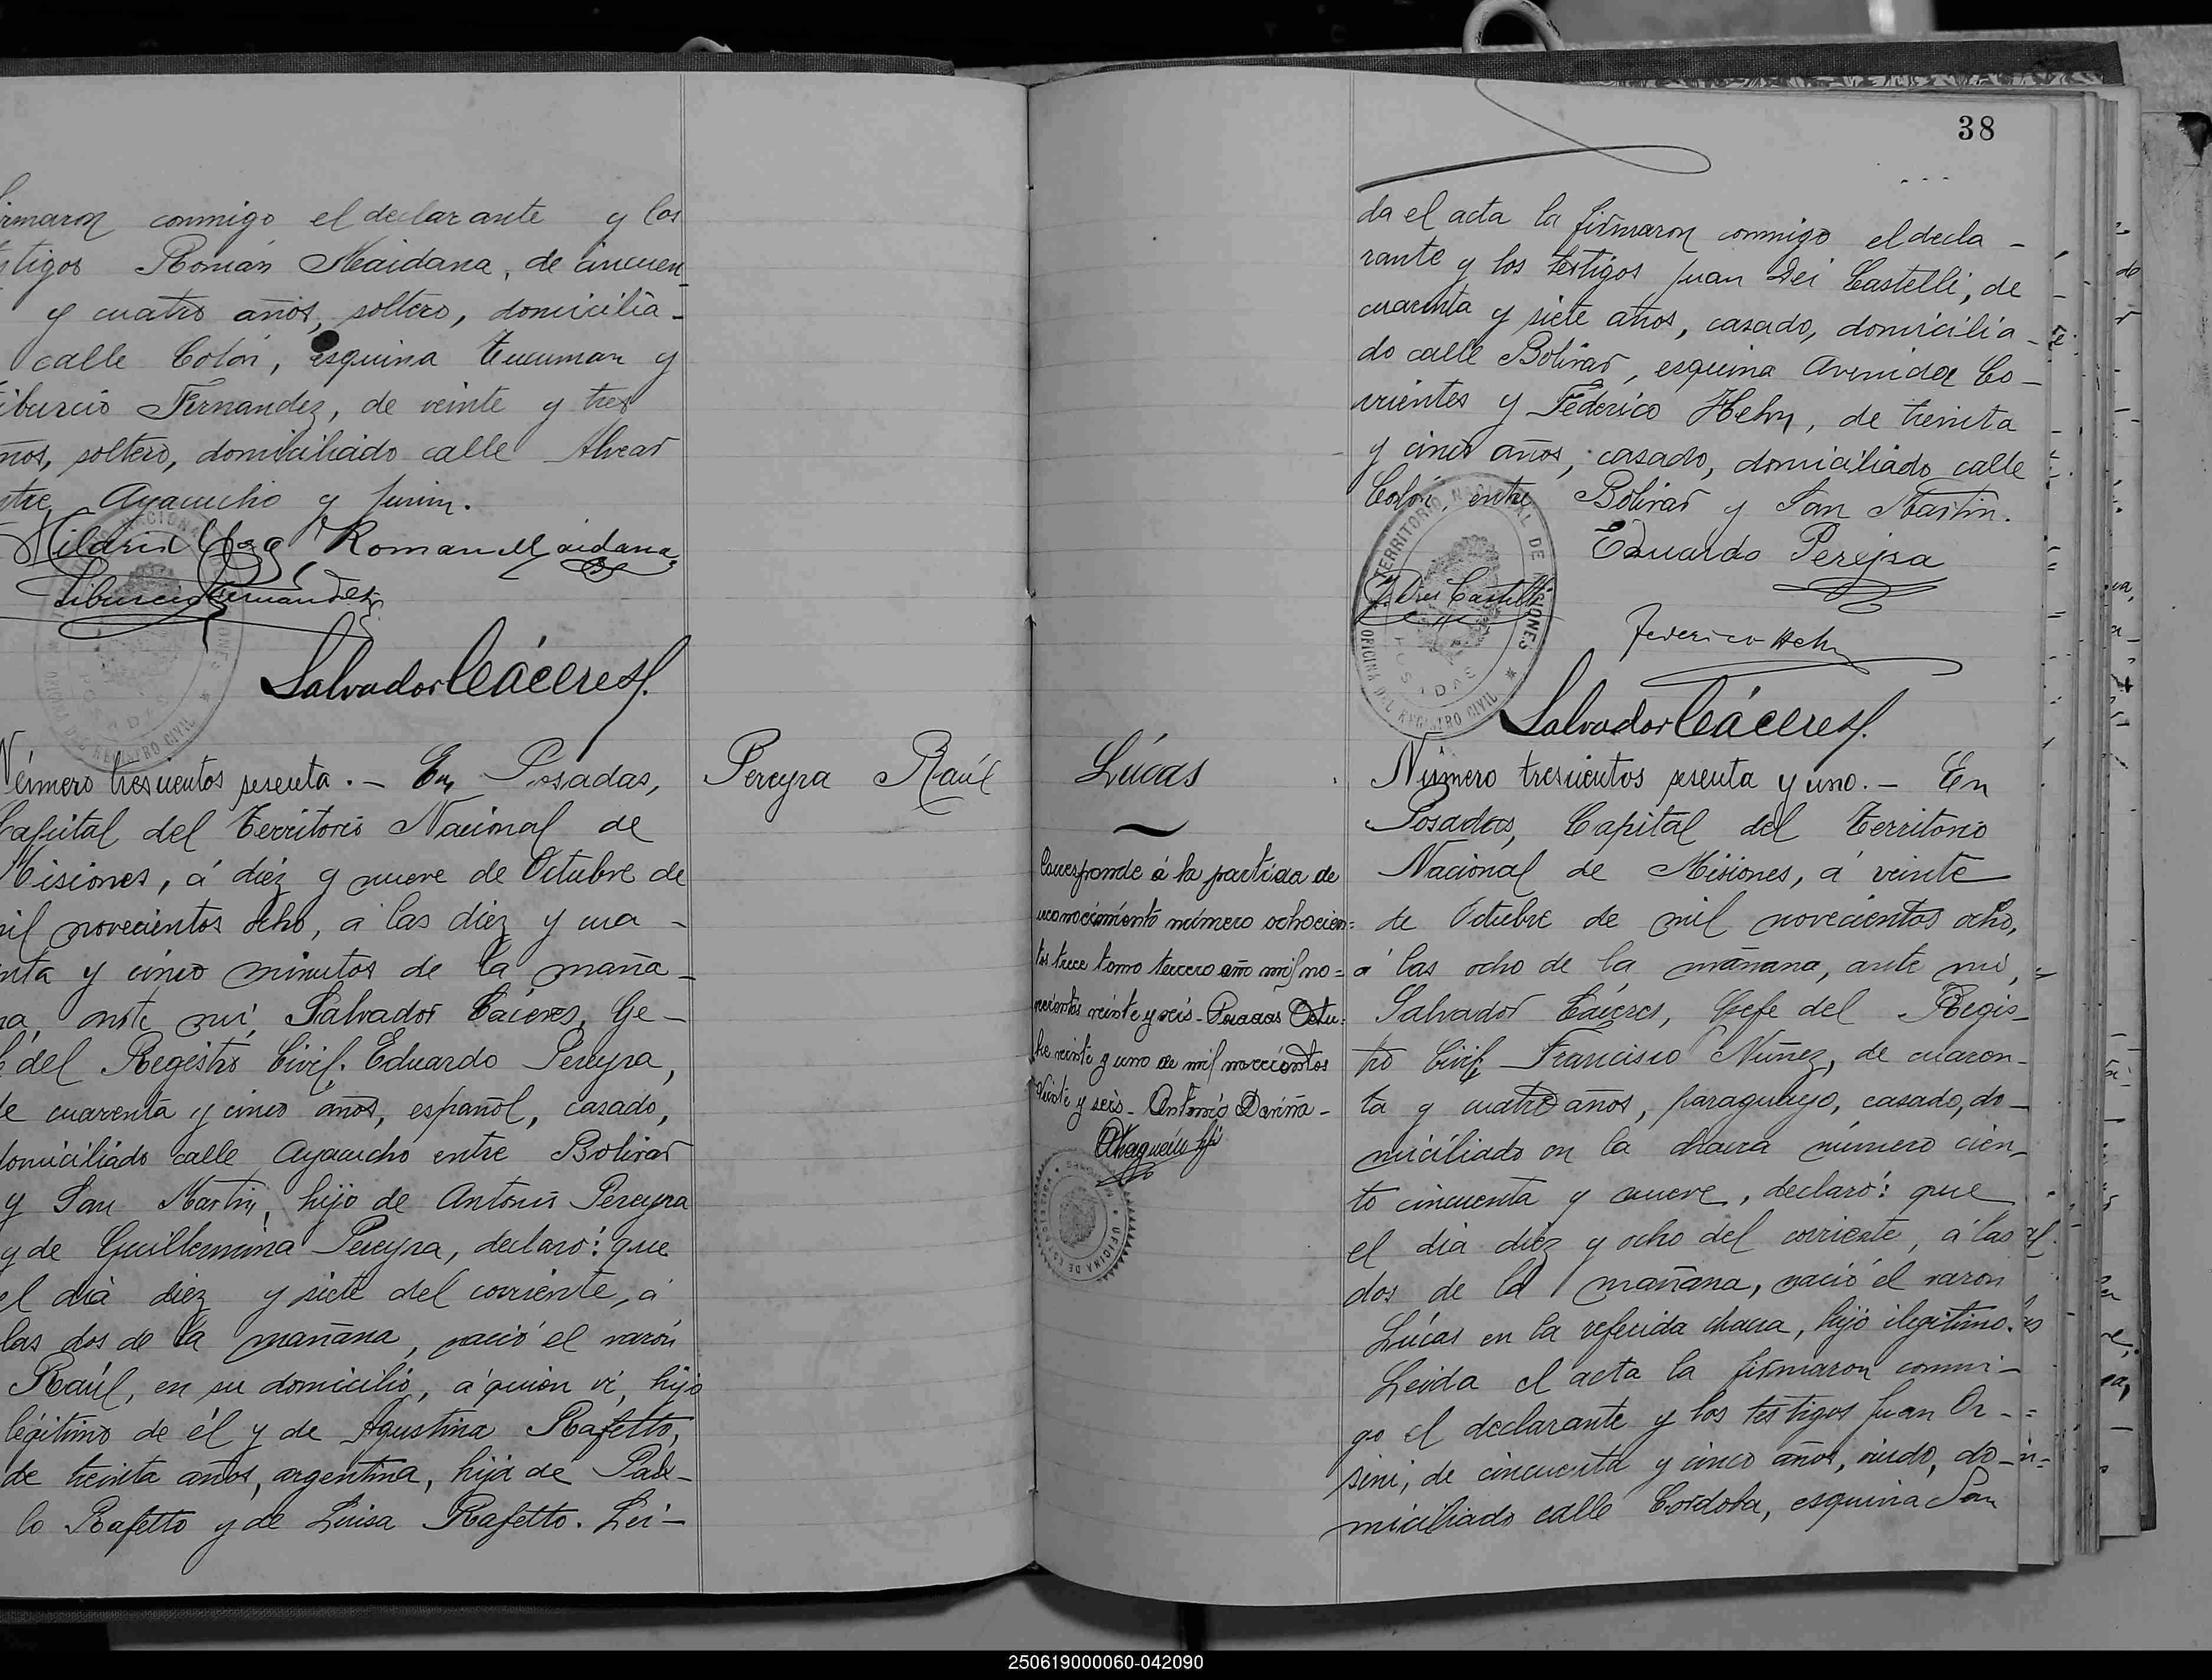 irmaron conmigo el declarante y los
stigos Román Maidana, de cincuen
y cuatro años, soltero, domicilia-
calle Colón, esquina Tucuman y
iburcio Fernandez, de veinte y tres
ños, soltero, domiciliado calle Alvear
ntre Ayacucho y Junin.
Roman Maidana
Tiburcio Fernandez
Salvador Cáceres
Número trescientos sesenta.- En Posadas,
Capital del Territorio Nacional de
Misiones, á diez y nueve de Octubre de
mil novecientos ocho, á las diez y cua-
renta y cinco minutos de la maña-
na, ante mi, Salvador Cáceres, Ge-
fe del Registro Civil. Eduardo Pereyra,
de cuarenta y cinco años, español, casado,
domiciliado calle Ayacucho entre Bolivar
y San Martin, hijo de Antonio Pereyra
y de Guillermina Pereyra, declaró: que
el dia diez y siete del corriente, á
las dos de la mañana, nació el varón
Raúl, en su domicilio, á quien vi, hijo
légitimo de él y de Agustina Rafetto,
de treinta años, argentina, hija de Pab-
lo Rafetto y de Luisa Rafetto. Lei-
Pereyra Raúl
38
da el acta la firmaron conmigo el decla-
rante y los testigos Juan Dei Castelli, de
cuarenta y siete años, casado, domicilia-
do calle Bolivar, esquina Avenida Co-
rrientes y Federico Hehn, de treinta
y cinco años, casado, domiciliado calle
Colón, entre Bolivar y San Martin.
Eduardo Pereyra
J. Dei Castelli
Federico Hehn
Salvador Cáceres
TERRITORIO NACIONAL DE MISIONES
OFICINA DEL REGISTRO CIVIL
POSADAS
Lúcas
Corresponde á la partida de
reconocimiento número ochocien=
tos trece tomo tercero año mil no=
vecientos veinte y seis - Posadas Octu=
bre veinte y uno de mil novecientos
veinte y seis -
Número trescientos sesenta y uno.- En
Posadas, Capital del Territorio
Nacional de Misiones, á veinte
de Octubre de mil novecientos ocho,
á las ocho de la mañana, ante mi,
Salvador Cáceres, Gefe del Regis-
tro Civil, Francisco Núñez, de cuaren-
ta y cuatro años, paraguayo, casado, do-
miciliado en la chacra número cien-
to cincuenta y nueve, declaró: que
el dia diez y ocho del corriente, á las
dos de la mañana, nació el varon
Lúcas en la referida chacra, hijo ilegitimo.
Leida el acta la firmaron conmi-
go el declarante y los testigos Juan Or-
sini, de cincuenta y cinco años, viudo, do-
miciliado calle Cordoba, esquina San
250619000060-042090